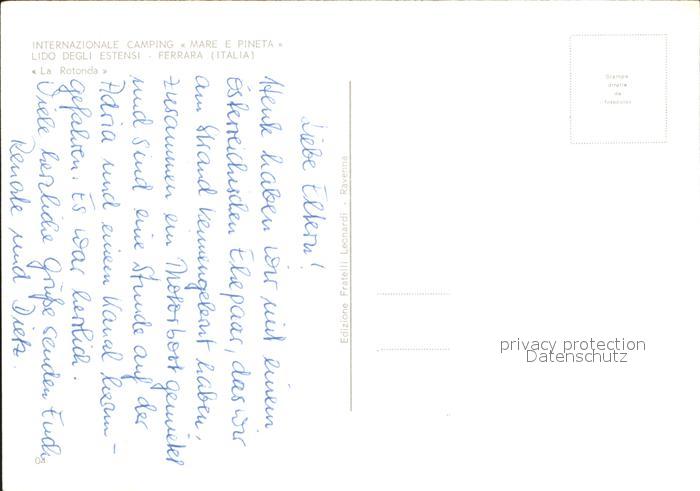 INTERNAZIONALE CAMPING « MARE E PINETA »
LIDO DEGLI ESTENSI - FERRARA (ITALIA)
« La Rotonda »
Liebe Eltern!
Heute haben wir mit einem
österreichischen Ehepaar, das wir
am Strand kennengelernt haben,
zusammen ein Motorboot gemietet
und sind eine Stunde auf der
Adria und einem Kanal herum-
gefahren. Es war herrlich.
Viele herzliche Grüße senden Euch
Renate und Dieter.
Edizione Fratelli Leonardi - Ravenna
Stampa
diretta
da
fotocolor
privacy protection
Datenschutz